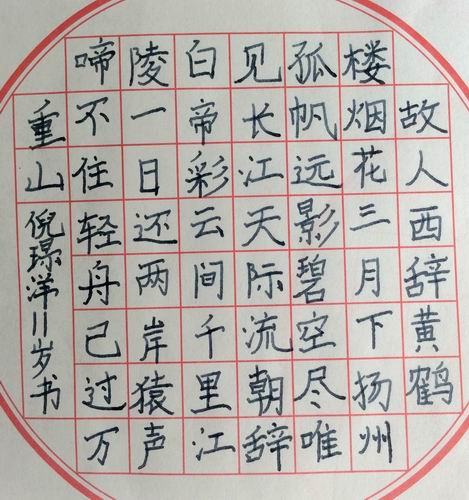 故人西辞黄鹤
楼烟花三月下扬州
孤帆远影碧空尽唯
见长江天际流朝辞
白帝彩云间千里江
陵一日还两岸猿声
啼不住轻舟已过万
重山倪璟洋11岁书